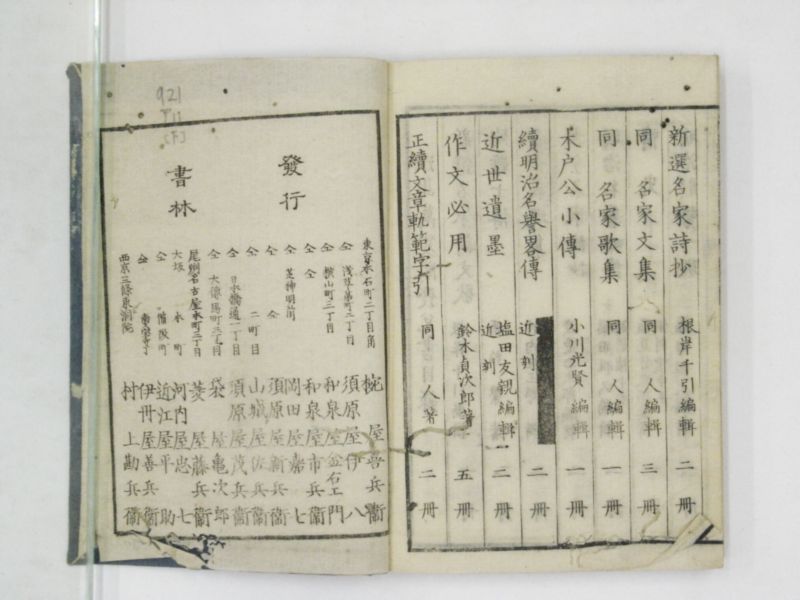 新選名家詩抄 根岸千引編輯 二冊
同 名家文集 同 人編輯 三冊
同 名家歌集 同 人編輯 一冊
木户公小傳 小川光賢編輯 一冊
續明治名譽畧傳 近刻 二冊
近世遺墨 塩田友親編輯 近刻 二冊
作文必用 鈴木貞次郎著 五冊
正續文章軌範字引 同 人著 二冊
發行
書林
東京本石町二丁目角 椀屋喜兵衞
仝 浅草茅町二丁目 須原屋伊八
仝 横山町三丁目 和泉屋金右エ門
仝 仝 和泉屋市兵衞
仝 芝神明前 岡田屋嘉七
仝 仝 須原屋新兵衞
仝 二町目 山城屋佐兵衞
仝 日本橋通一丁目 須原屋茂兵衞
仝 大傳馬町三丁目 袋屋亀次郎
尾州名古屋本町二丁目 菱屋藤兵衞
大坂 本町 河内屋忠七
仝 備後町 近江屋平助
仝 伊丹屋善兵衞
西京三條東洞院 村上勘兵衞
921